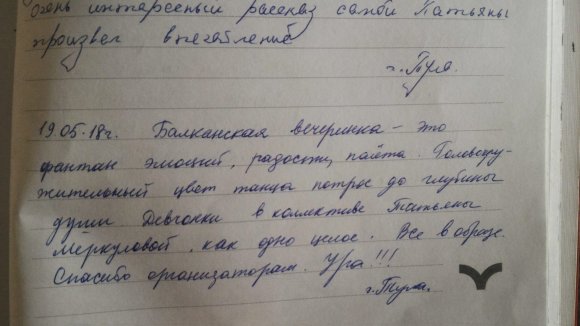 очень интересный рассказ самой Татьяны
произвел впечатление
г. Тула.
19.05.18г. Балканская вечеринка – это
фантан эмоций, радости, полёта. Головокру-
жительный цвет танца потряс до глубины
души Девчонки в коллективе Татьяны
Меркуловой, как одно целое. Все в образе.
Спасибо организаторам. Ура!!!
г. Тула.